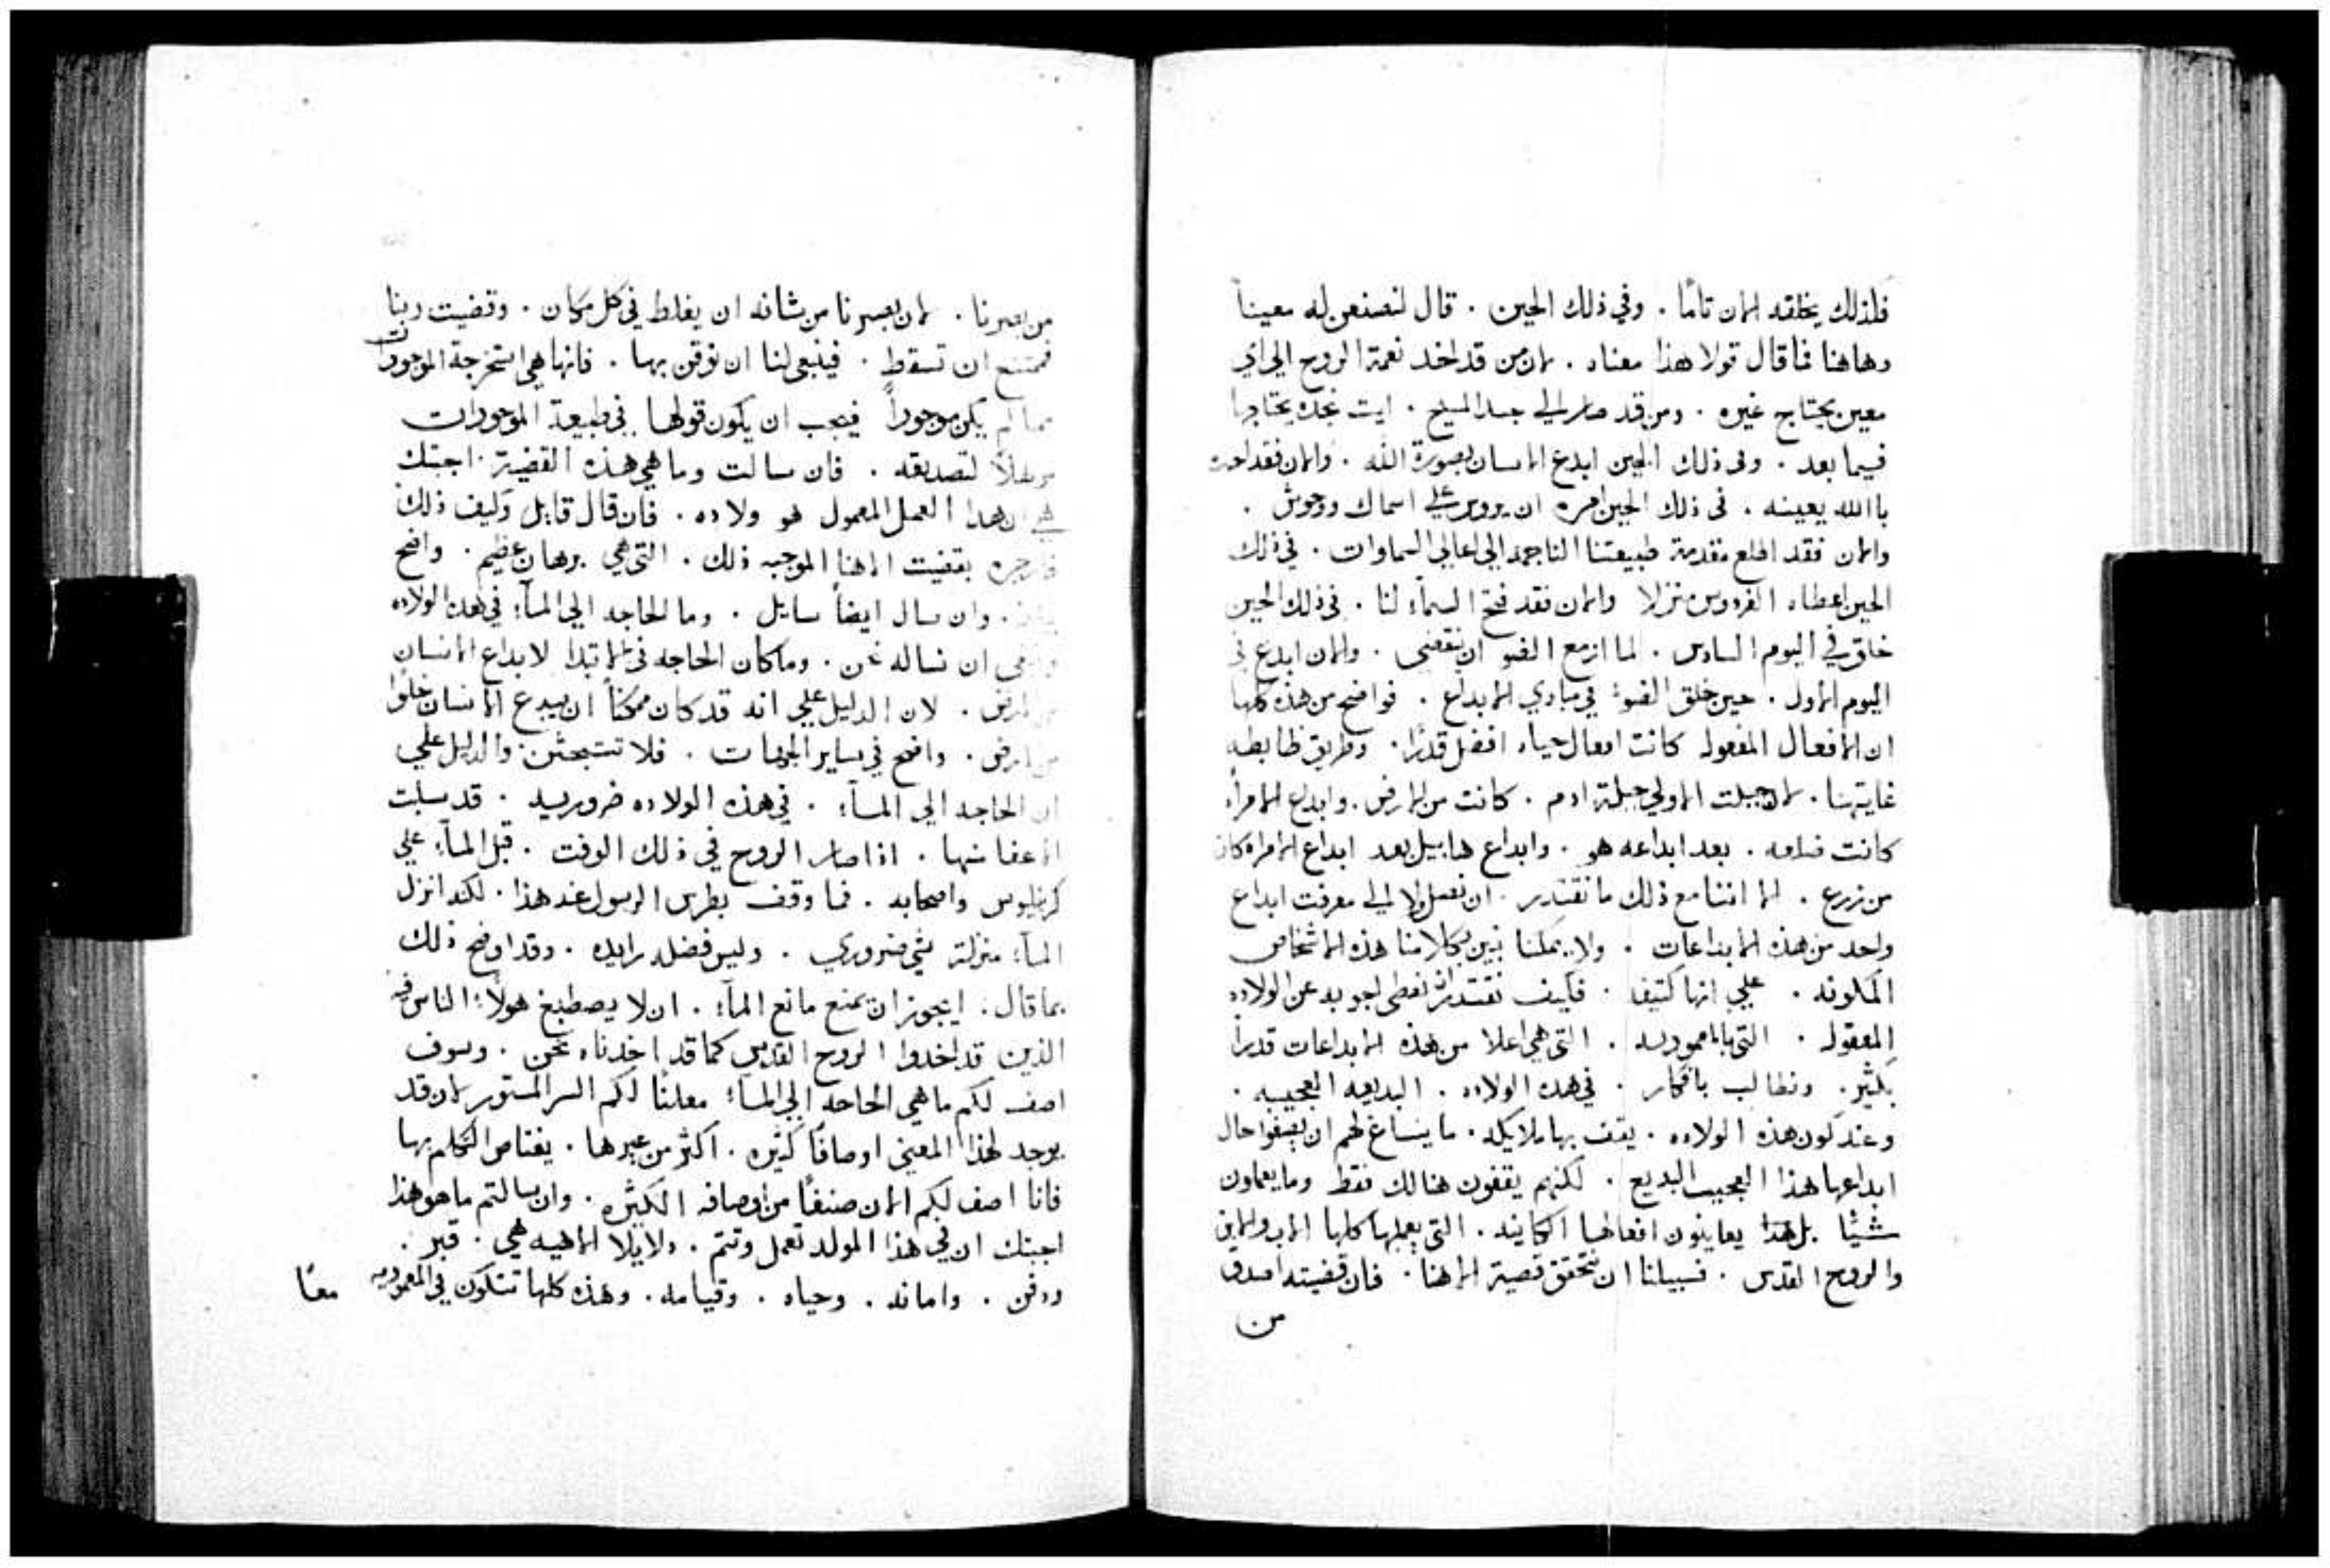 فلذلك يخلقه الان تامًا . وفي ذلك الحين . قال لنصنعن له معينًا
وهاهنا فما قال قولا هذا معناه . لان من قد اخد نعمة الروح الي اي
معين يحتاج غيره . ومن قد صار الي جسد المسيح . ايت نجده يحتاجها
فيما بعد . وفى ذلك الحين ابدع الانسان بصورة الله . والان فقد احده
بالله بعينه . فى ذلك الحين امره ان يروس علي اسماك ووحوش .
والان فقد اطلع مقدمة طبيعتنا الناجمه الي اعالي السماوات . في ذلك
الحين اعطاه الفردوس منزلا والان فقد فتح السمآء لنا . فى ذلك الحين
خلق في اليوم السادس . لما ازمع الضو ان ينقضى . والان ابدع في
اليوم الاول . حين خلق الضوء في مبادي الابداع . فواضح من هذه كلها
ان الافعال المفعوله كانت افعال حياه افضل قدرًا . وطريق ضابطه
غايتها . لان جبلت الاولي جبلة ادم . كانت من الارض . وابداع الامراه
كانت ضلعه . بعد ابداعه هو . وابداع هابيل بعد ابداع الامراه كان
من زرع . الا اننا مع ذلك ما نقتدر . ان نصل ولا الي معرفت ابداع
واحد من هذه الابداعات . ولا يمكنا نبين بكلامنا هذه الاشخاص
المكونه . علي انها كتيفه . فكيف نقتدر ان نعطى اجوبه عن الولاده
المعقوله . التي بالمعموديه . التى هي اعلا من هذه الابداعات قدرًا
بكثير . ونطالب بافكار . في هده الولاده . البديعه العجيبه .
وعند كون هذه الولاده . يقف بها ملايكه . ما ينساغ لهم ان يصفوا حال
ابداعها هذا العجيب البديع . لكنهم يقفون هنالك فقط وما يعملون
شيئًا بل هذا يعاينون افعالها الكاينه . التى يعملها كلها الاب والابن
والروح القدس . فسبيلنا ان نتحقق قضية الاهنا . فان قضيته اصدق
من
من بصرنا . لان بصرنا من شانه ان يغلط في كل مكان . وقضيت ربنا
فممتنع ان تسقط . فينبغى لنا ان نوقن بها . فانها هي استخرجة الموجودات
مما لم يكن موجوداً فيجب ان يكون قولها في طبيعة الموجودات
موهلاً لتصديقه . فان سالت وما هي هذه القضية . اجبتك
هي ان هدا العمل المعمول هو ولاده . فان قال قايل وكيف ذلك
بقضيت الاهنا الموجبه ذلك . التى هي برهان عظيم . واضح
وان سال ايضاً سايل . وما الحاجه الي المآء في هده الولاده
ان نساله نحن . وما كان الحاجه فى الابتدا لابداع الانسان
من الارض . لان الدليل علي انه قد كان ممكنًا ان يبدع الانسان خلوًا
من ارض . واضح في ساير الجهات . فلا تتبحثن . والدليل علي
ان الحاجه الي المآء . في هذه الولاده ضروريه . قد سلبت
الاعفا منها . اذا صار الروح في ذلك الوقت . قبل المآء علي
كرنيليوس واصحابه . فما وقف بطرس الرسول عند هذا . لكنه انزل
المآء منزلة شي ضروري . وليس فضله زايده . وقد اوضح ذلك
بما قال . ايجوز ان يمنع مانع المآء . ان لا يصطبغ هولآء الناس فيه
الذين قد اخدوا الروح القدس كما قد اخدناه نحن . وسوف
اصف لكم ما هي الحاجه الي المآء معلنًا لكم السر المستور لان قد
يوجد لهذا المعني اوصافًا كثيره . اكثر من غيرها . يغتاص التكلم بها
فانا اصف لكم الان صنفًا من اوصافه الكثيره . وان سالتم ما هو هذا
اجبتك ان في هذا المولد تعمل وتتم . دلايلا الاهيه هي . قبر .
ودفن . واماته . وحياه . وقيامه . وهذه كلها تتكون في المعموديه
معًا